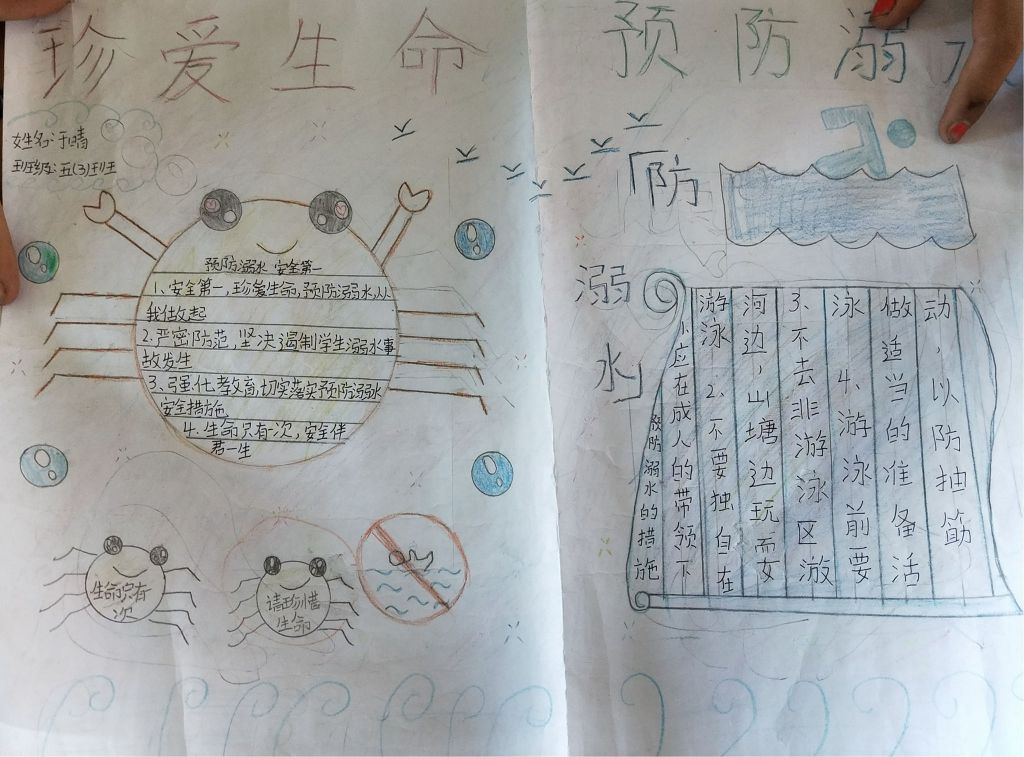 珍爱生命
预防溺
姓名:于晴
班级:五(3)班
预防溺水 安全第一
1、安全第一,珍爱生命,预防溺水,从
我做起
2.严密防范,坚决遏制学生溺水事
故发生
3、强化教育,切实落实预防溺水
安全措施
4.生命只有一次,安全伴
君一生
生命只有
一次
请珍惜
生命
防
溺
水
预防溺水的措施
1、应在成人的带领下
游泳 2、不要独自在
河边,山塘边玩耍
3、不去非游泳区游
泳 4、游泳前要
做适当的准备活
动,以防抽筋